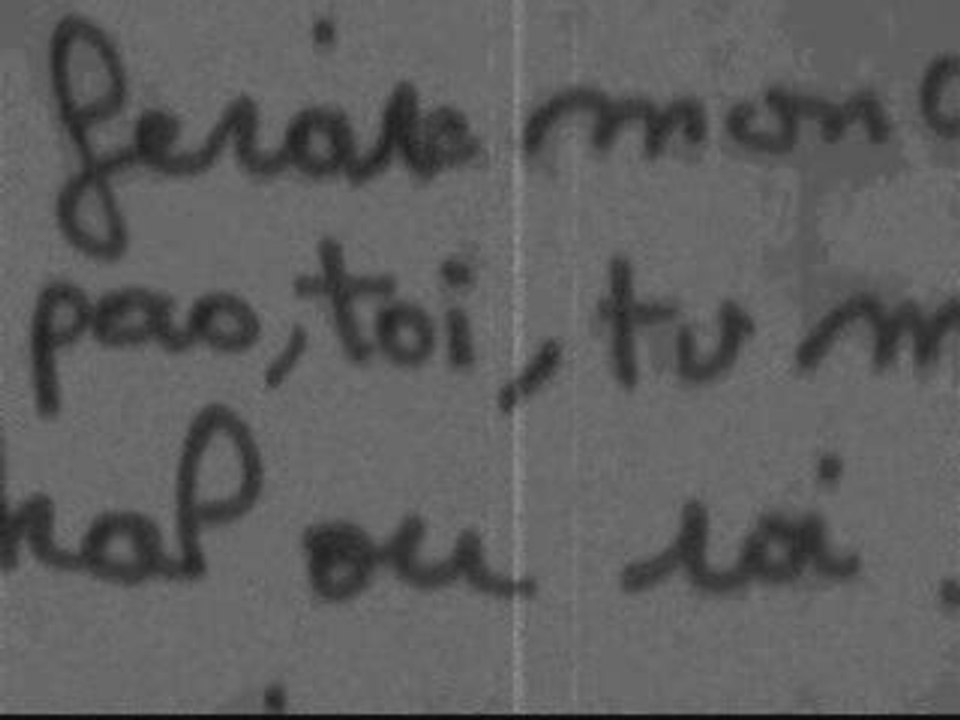 ferais mon
pas, toi, tu m
mal ou